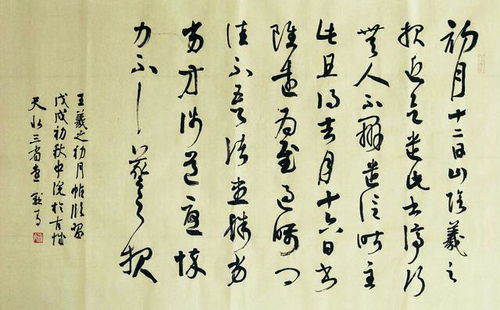 初月十二日山陰羲之
報近欲遣此書停行
無人不辦遣信昨至
此且得去月十六日書
雖遠為慰過囑卿
佳不吾諸患殊劣
劣方涉道憂悴
力不一一羲之報
王羲之初月帖臨習
戊戌初秋中浣於古
天水三省堂